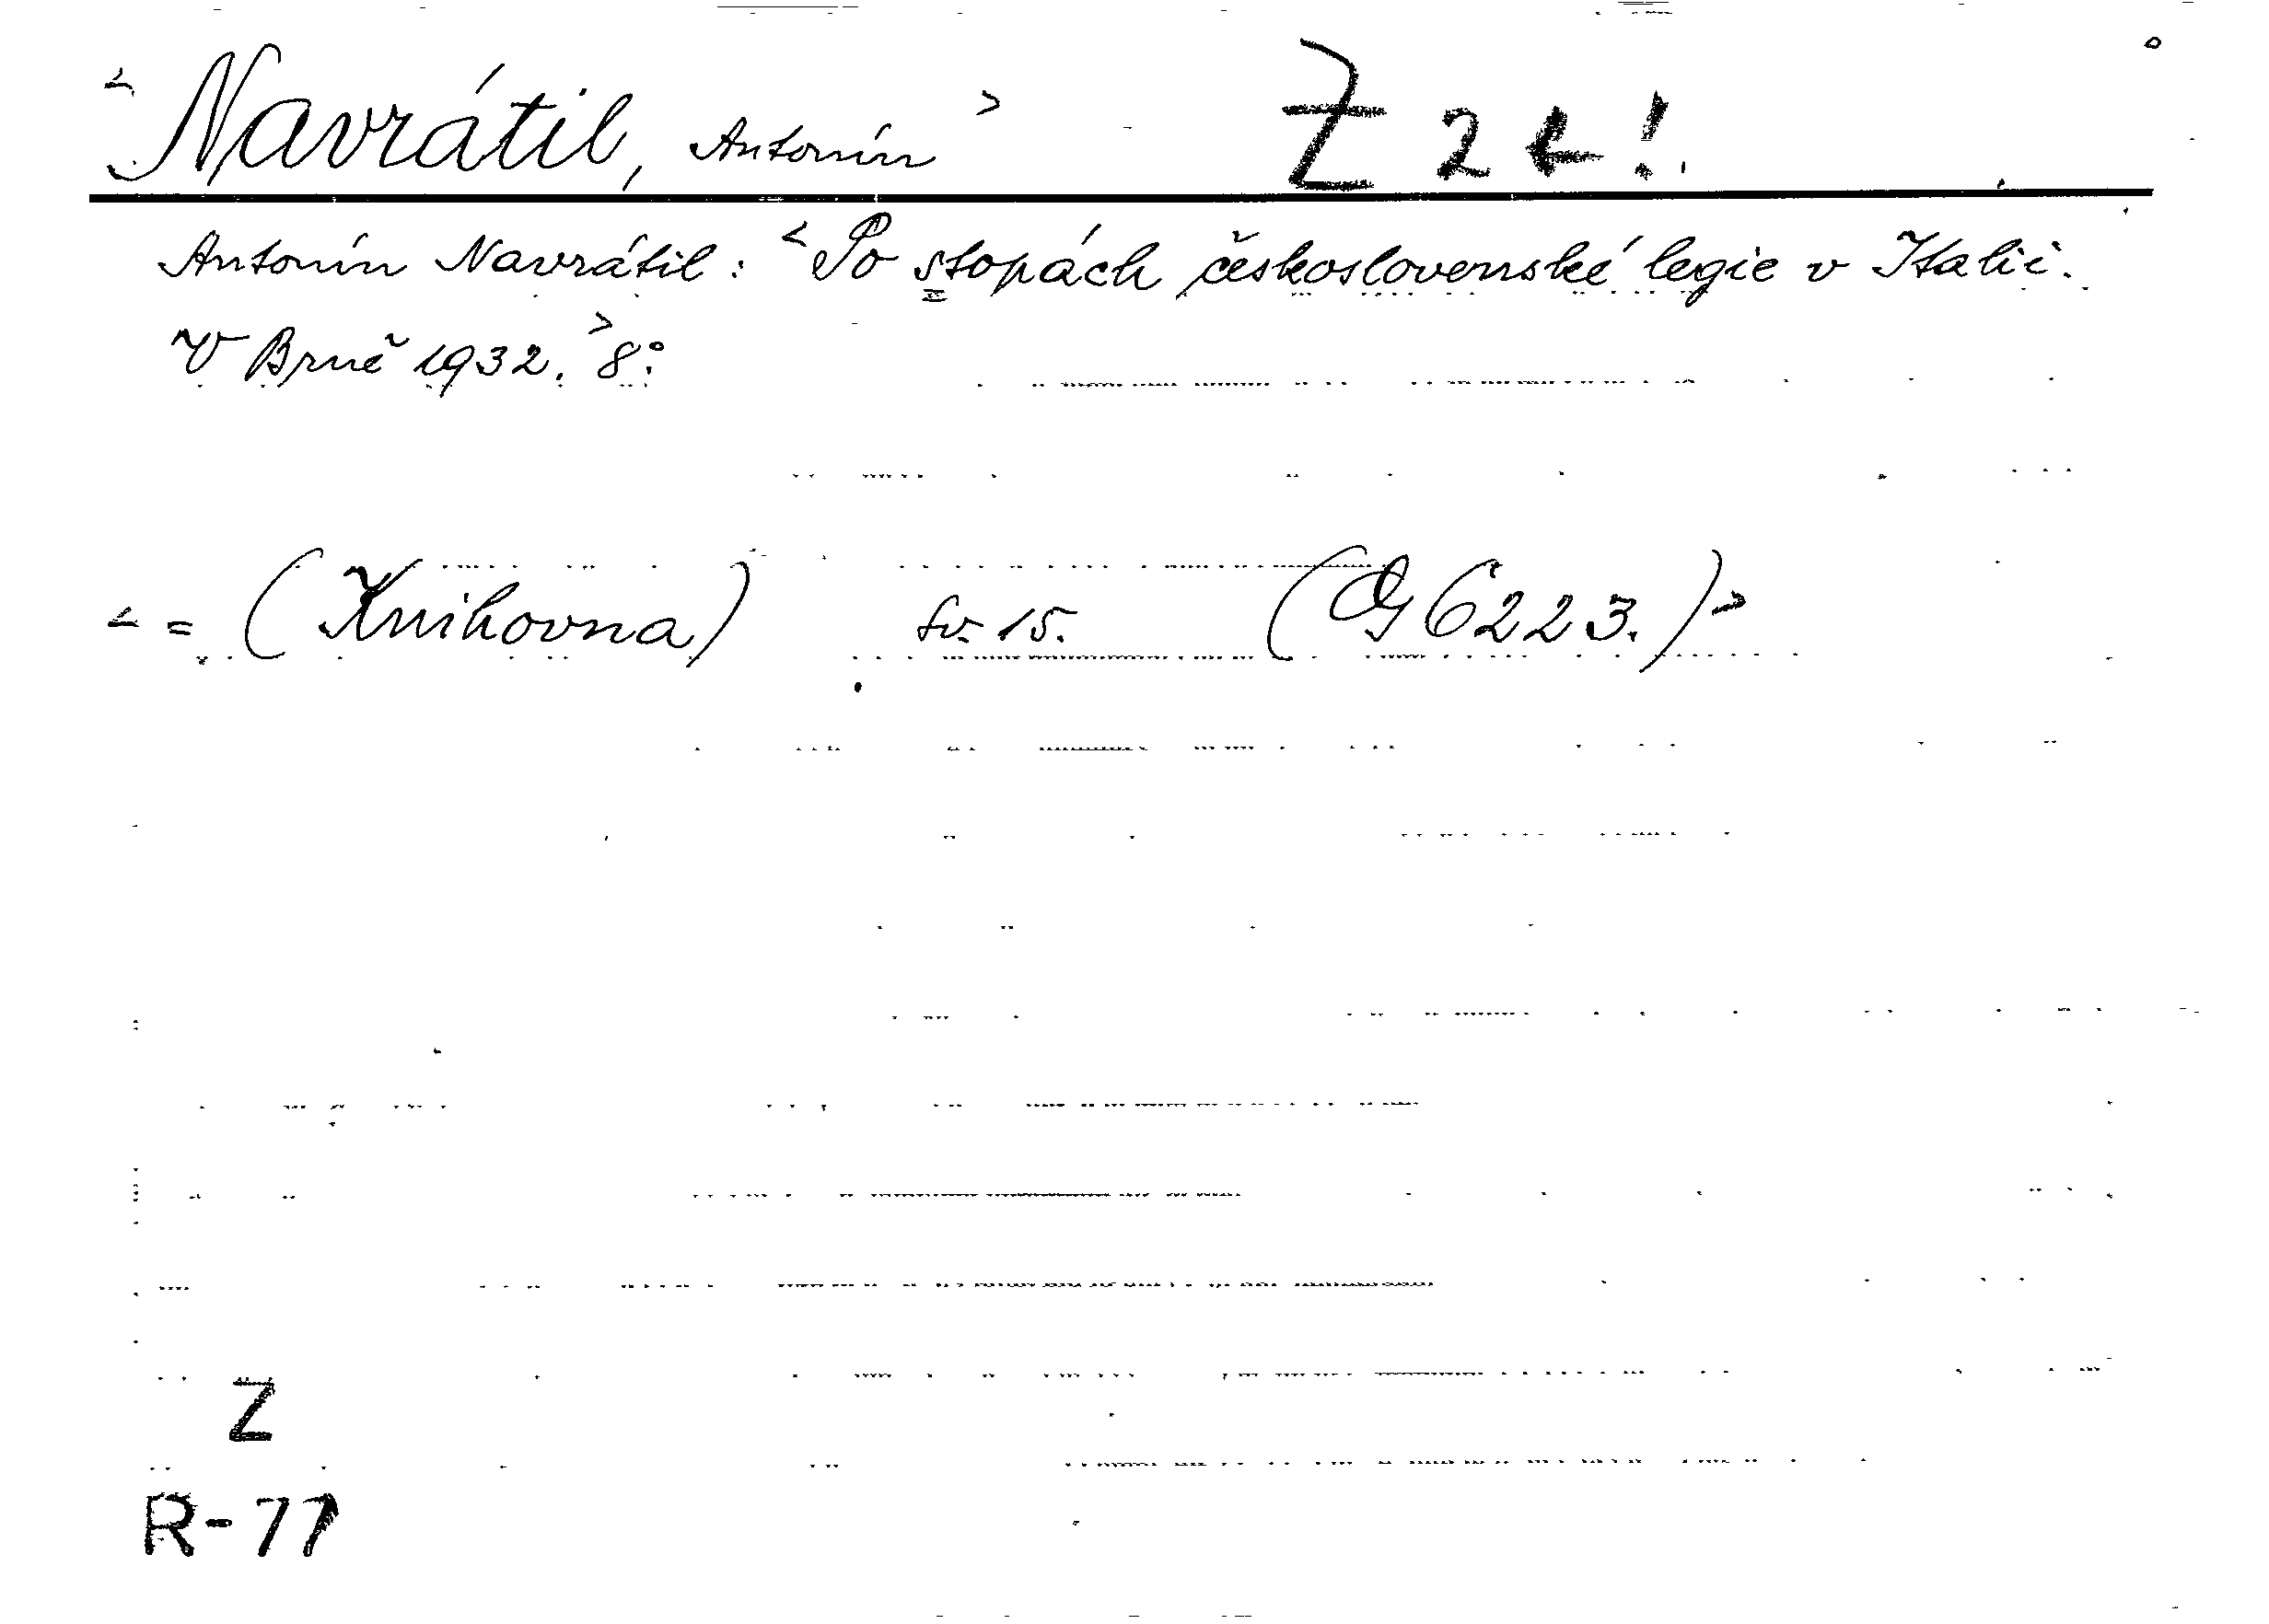 < Navrátil, Antonín > Z 2 !
Antonín Navrátil: < Po stopách československé legie v Italii.
V Brně 1932. > 8°.
< = (Knihovna) Sv. 15. (G 6223.) >
Z
R-77